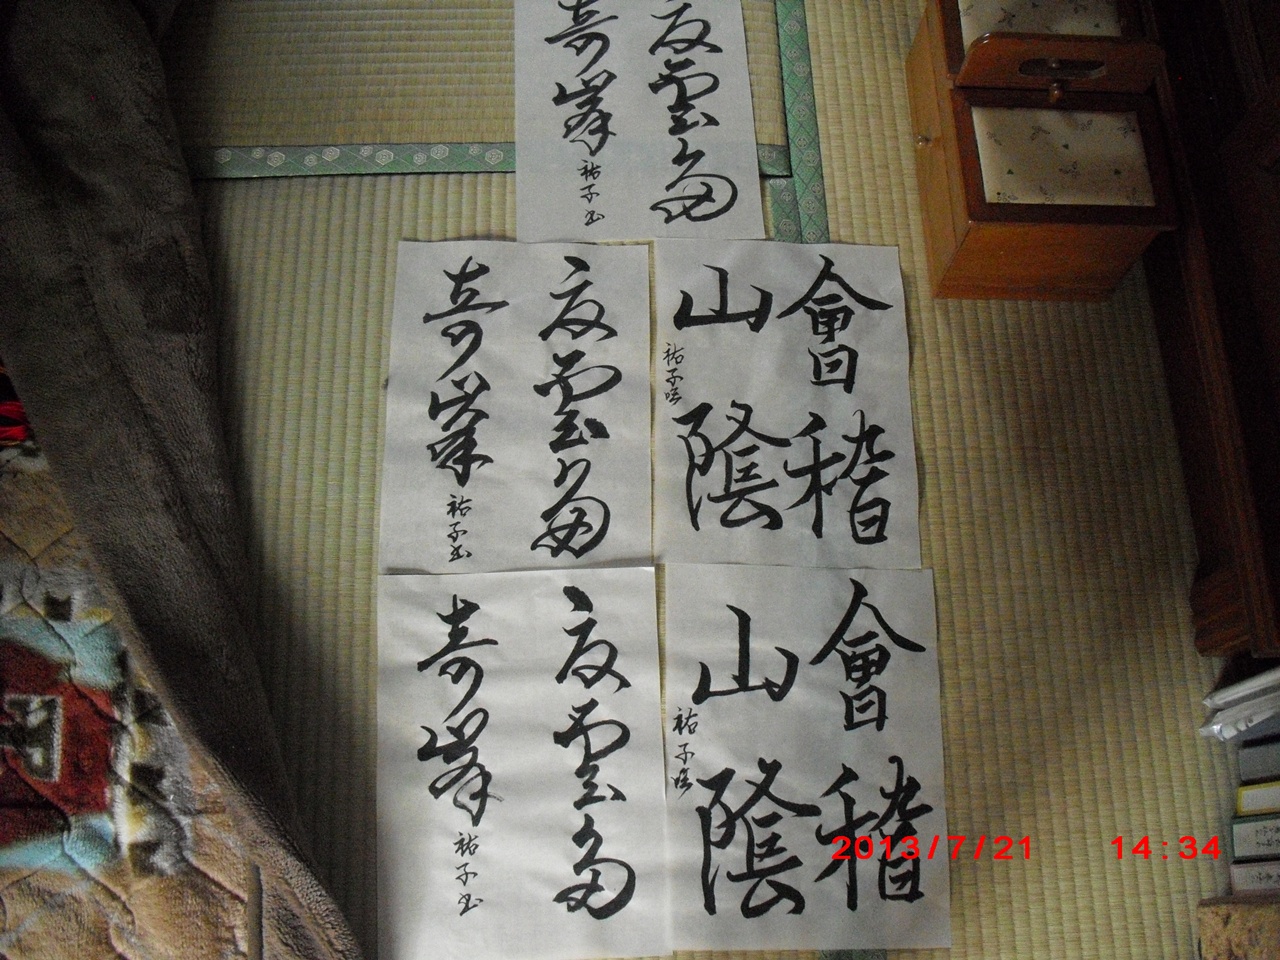 夏雲多
奇峯
祐子書
夏雲多
奇峯
祐子書
會稽
山陰
祐子臨
夏雲多
奇峯
祐子書
會稽
山陰
祐子臨
2013/7/21 14:34